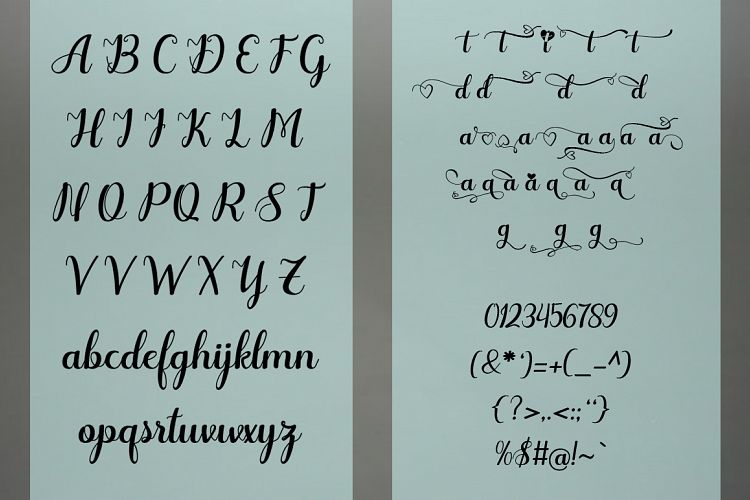 A B C D E F G
H I J K L M
N O P Q R S T
V V W X Y Z
abcdefghijklmn
opqsrtuvwxyz
t t t t t
d d d d
a a a a a
a q a a q a q
g g g
0123456789
(&*')=+(_-^)
{?>,.<:;"}
%$#@!~`